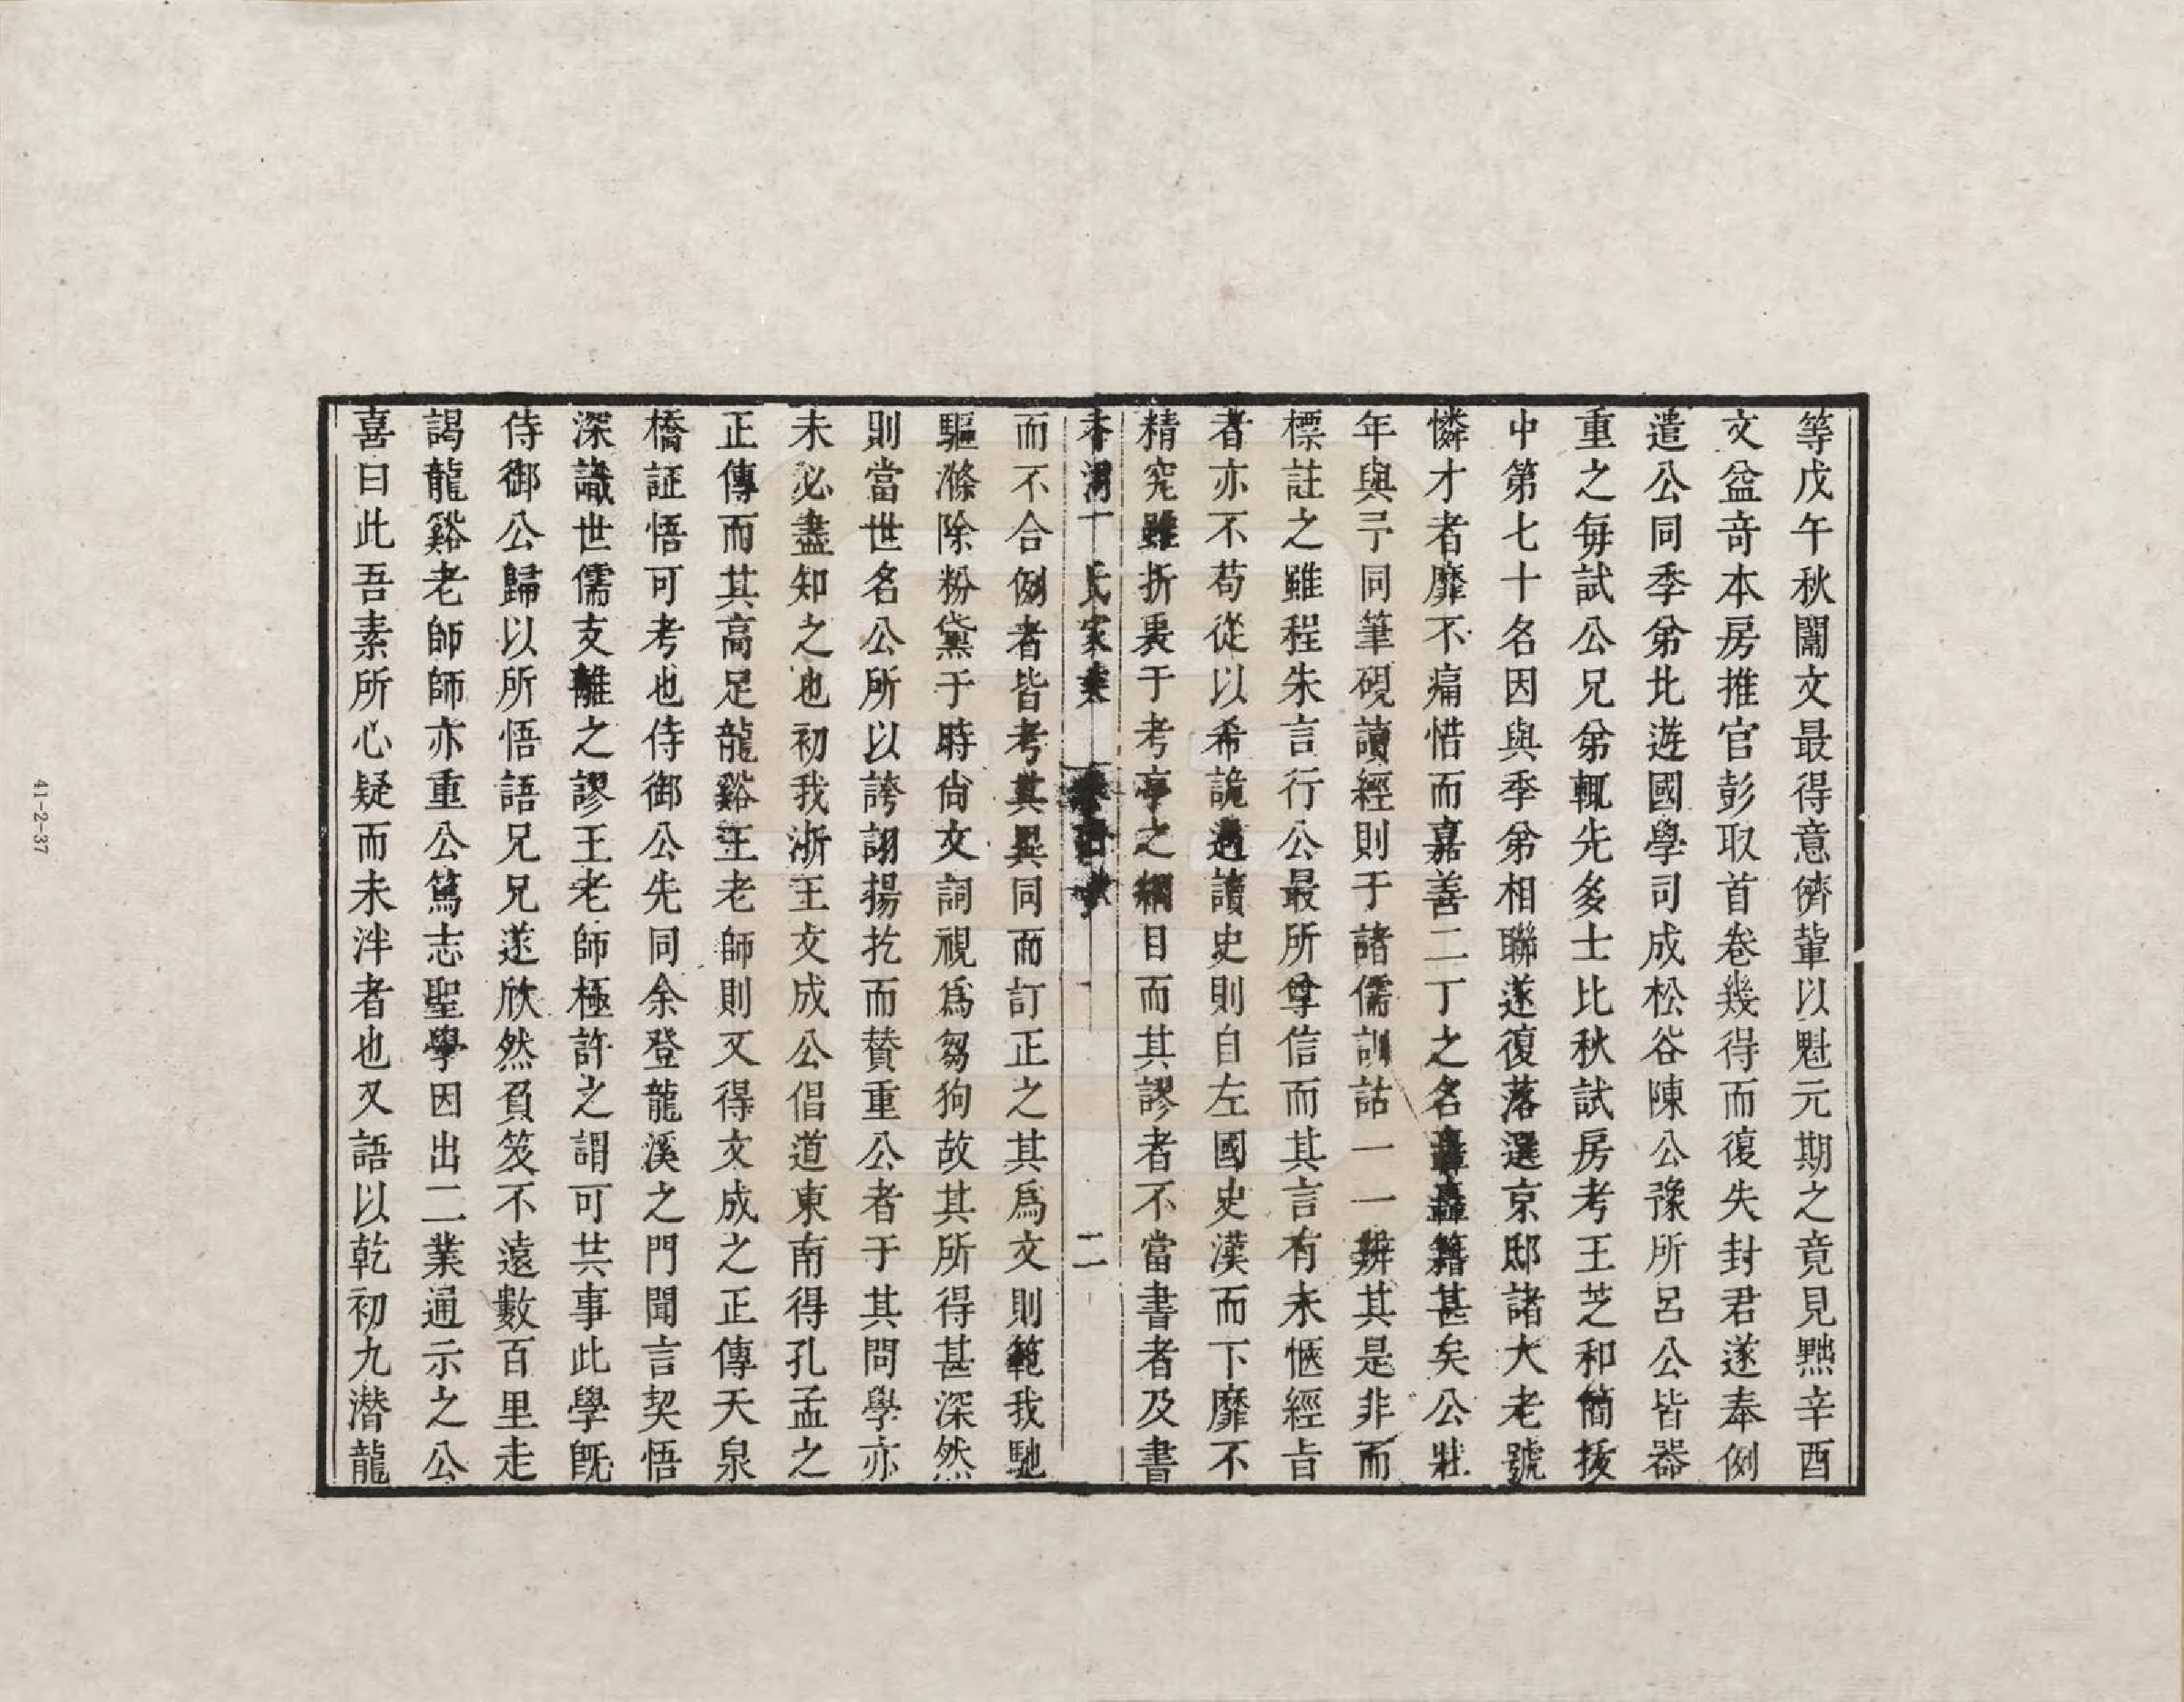 等戊午秋闈文最得意儕輩以魁元期之竟見黜辛酉
文益奇本房推官彭取首卷幾得而復失封君遂奉例
遣公同季弟北遊國學司成松谷陳公豫所呂公皆器
重之每試公兄弟輒先多士比秋試房考王芝和簡拔
中第七十名因與季弟相聯遂復落選京邸諸大老號
憐才者靡不痛惜而嘉善二丁之名轟轟籍甚矣公壯
年與予同筆硯讀經則于諸儒訓詁一一辨其是非而
標註之雖程朱言行公最所尊信而其言有未愜經旨
者亦不苟從以希詭遇讀史則自左國史漢而下靡不
精究雖折衷于考亭之綱目而其謬者不當書者及書
丁氏家集
二
而不合例者皆考其異同而訂正之其為文則範我馳
驅滌除粉黛于時尚文詞視為芻狗故其所得甚深然
則當世名公所以誇詡揚扢而贊重公者于其問學亦
未必盡知之也初我浙王文成公倡道東南得孔孟之
正傳而其高足龍谿王老師則又得文成之正傳天泉
橋証悟可考也侍御公先同余登龍溪之門聞言契悟
深識世儒支離之謬王老師極許之謂可共事此學既
侍御公歸以所悟語兄兄遂欣然負笈不遠數百里走
謁龍谿老師師亦重公篤志聖學因出二業通示之公
喜曰此吾素所心疑而未泮者也又語以乾初九潛龍
41-2-37